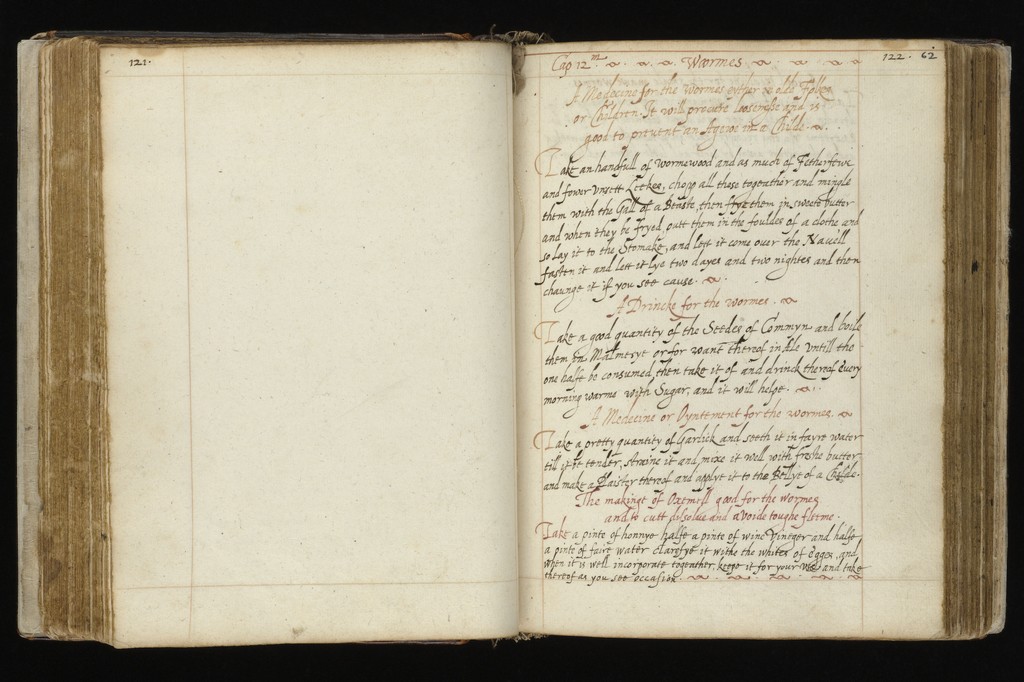 121.
Cap 12m. Wormes 122. 62
A Medecine for the wormes either in olde Folke
or Children. It will procure loosenesse and is
good to prevent an Agewe in a Childe.
Take an handfull of wormewood and as much of Fetherfewe
and fower vnsett Leekes, chopp all these togeather and mingle
them with the Gall of a Beaste, then frye them in sweete butter
and when they be fryed, putt them in the fouldes of a clothe and
so lay it to the Stomake, and lett it come over the Navell
fasten it and lett it lye two dayes and two nightes and then
chaunge it if you see cause.
A Drincke for the wormes.
Take a good quantity of the Seedes of Commyn and boile
them in Malmesye or for want thereof in Ale vntill the
one halfe be consumed, then take it of and drinck thereof every
morning warme with Sugar, and it will helpe.
A Medecine or Oyntement for the wormes.
Take a pretty quantity of Garlick and seeth it in fayre water
till it be tender, straine it and mixe it well with freshe butter
and make a Plaister thereof and applye it to the Bellye of a Childe.
The makinge of Oxemell good for the wormes
and to cutt disolve and avoide toughe fleme.
Take a pinte of honnye halfe a pinte of wine Vineger and halfe
a pinte of faire water clarifye it withe the whites of Egges, and
when it is well incorporate togeather, keepe it for your vse and take
thereof as you see occasion.